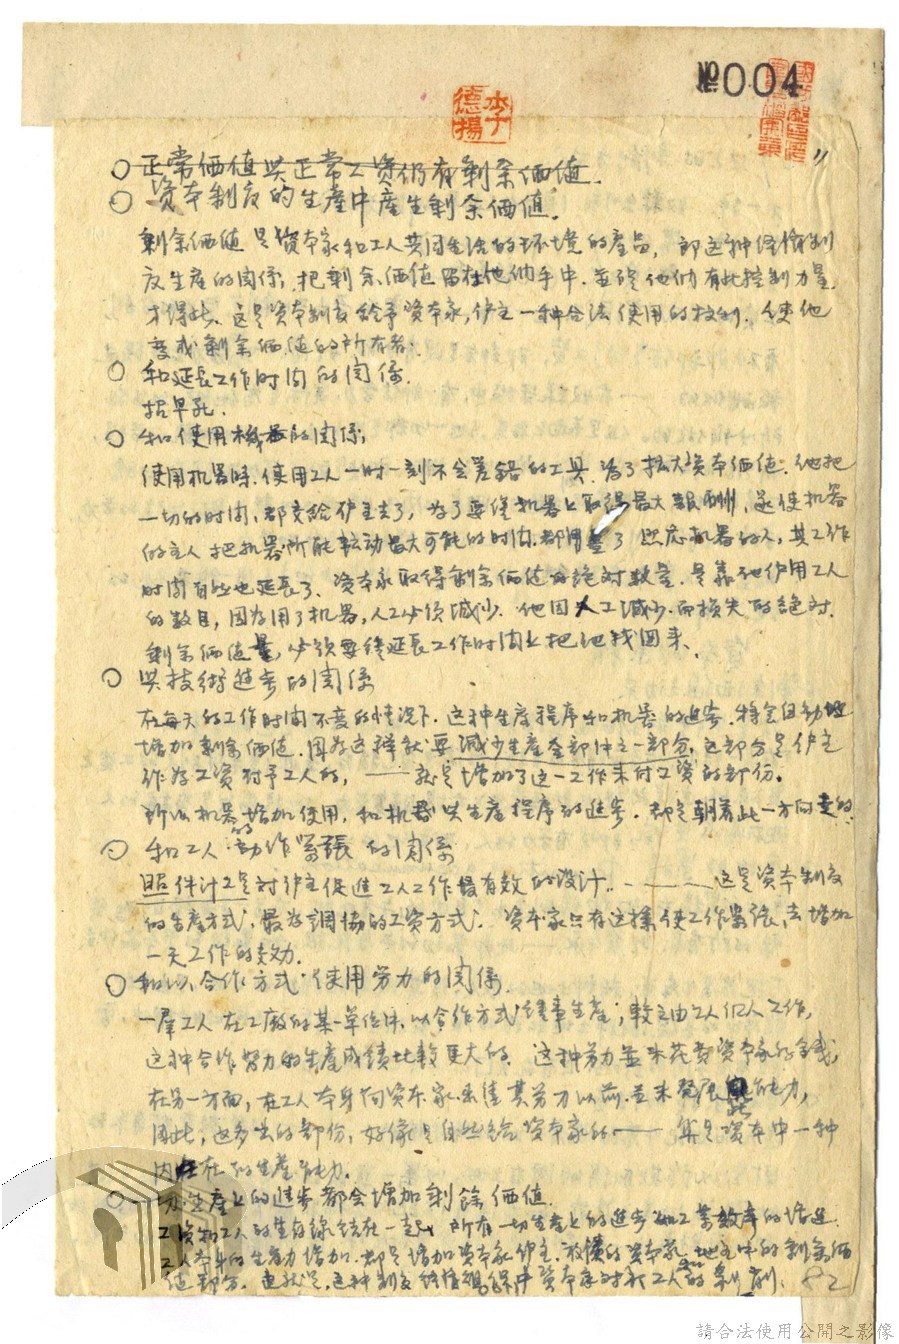 №004
李德揚
○ 正常価値與正常工資仍有剩余価值.
○ 资本制度的生產中產生剩余価值.
剩余価值是资本家和工人共同生活的环境的產品, 即这种经济制
度生產的関係, 把剩余価值留在他们手中. 並从他们有此控制力量,
才得此. 这是资本制度给予资本家, 炉主一种合法使用的权利. 使他
变成剩余価值的所有者.
○ 和延長工作时间的関係.
○ 和使用机器的関係;
使用机器時, 使用工人一时一刻不会差錯的工具. 為了拡大资本価值. 他把
一切的时间, 都交給炉主去了, 為了要從机器上取得最大報酬, 逐使机器
的主人把机器所能転动最大可能的时间, 都用盡了 照应机器的人, 其工作
时间自然也延長了. 资本家取得剩余価值的絶对数量. 是靠他炉用工人
的数目, 因為用了机器, 人工必须減少. 他因人工減少而損失的絶对
剩余価值量, 必须要從延長工作时间上把他找回来.
○ 與技術進步的関係
在每天的工作时间不变的情况下. 这种生產程序和机器的進步. 将会自动地
增加剩余価值. 因為这样就要減少生產全部中之一部分, 这部分是炉主
作為工资付予工人的, —— 就是增加了这一工作未付工资的部份.
所以机器的增加使用, 和机器與生產程序的進步. 都是朝着此一方向走的.
○ 和工人动作緊張的関係
照件计工是对炉主促進工人工作最有效的设计. —·—— 这是资本制度
的生產方式, 最為調協的工资方式. 资本家只有这樣使工作緊張, 去增加
一天工作的効力.
○ 和以合作方式使用劳力的関係.
一羣工人在工廠的某一单位中, 以合作方式從事生產; 較之由工人们人工作,
这种合作努力的生產成績比較更大的. 这种劳力並未花費资本家的金錢;
在另一方面, 在工人本身向资本家出售其劳力以前. 並未発展此能力,
因此, 这多出的部份, 好像是自然给资本家的 —— 算是资本中一种
内在在的生產能力.
○ 一切生產上的進步都会增加剩餘価值.
工资和工人的生存線結在一起 所有一切生產上的進步如工業效率的增進
工人本身的生產力增加. 都是增加资本家, 炉主, 放債的资本家, 地主中的剩余価
值部分. 也就是, 这种制度
82
請合法使用公開之影像